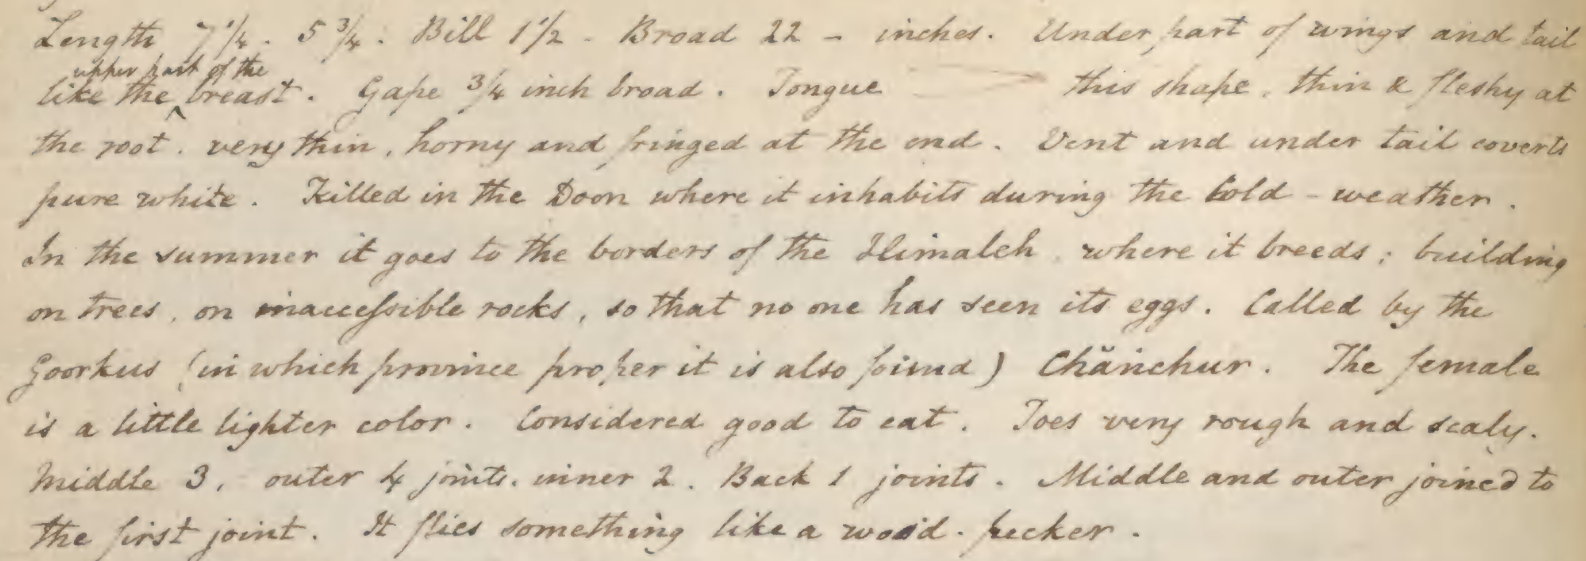 Length 7 1/4 . 5 3/4 . Bill 1 1/2 - Broad 22 - inches. Under part of wings and tail
upper part of the
like the ^ breast. Gape 3/4 inch broad. Tongue this shape, thin & fleshy at
the root, very thin, horny and fringed at the end. Vent and under tail coverts
pure white. Killed in the Doon where it inhabits during the Cold-weather.
In the summer it goes to the borders of the Himaleh, where it breeds; building
on trees, on inaccessible rocks, so that no one has seen its eggs. Called by the
Goorkus (in which province proper it is also found) Chănchur. The female
is a little lighter color. Considered good to eat. Toes very rough and scaly.
Middle 3, outer 4 joints, inner 2. Back 1 joints. Middle and outer joined to
the first joint. It flies something like a wood-pecker.